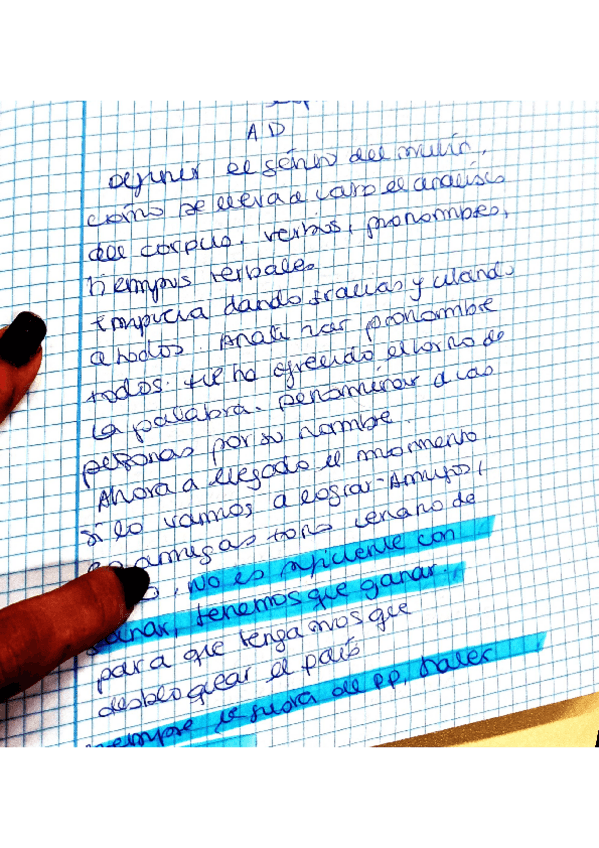 A D
Definir el género del mitin,
como se lleva a cabo el analisis
del corpus. verbos, pronombres,
tiempos verbales
Empieza dando gracias y citando
a todos. Analizar pronombre
todos. Me ha ofrecido el torno de
la palabra. Denominar a las
personas por su nombre.
Ahora a llegado el momento
si lo vamos a lograr - Amigos,
amigas tono cercano de
, No es suficiente con
ganar, tenemos que ganar.
para que tengamos que
desbloquear el país
siempre de pp, haber